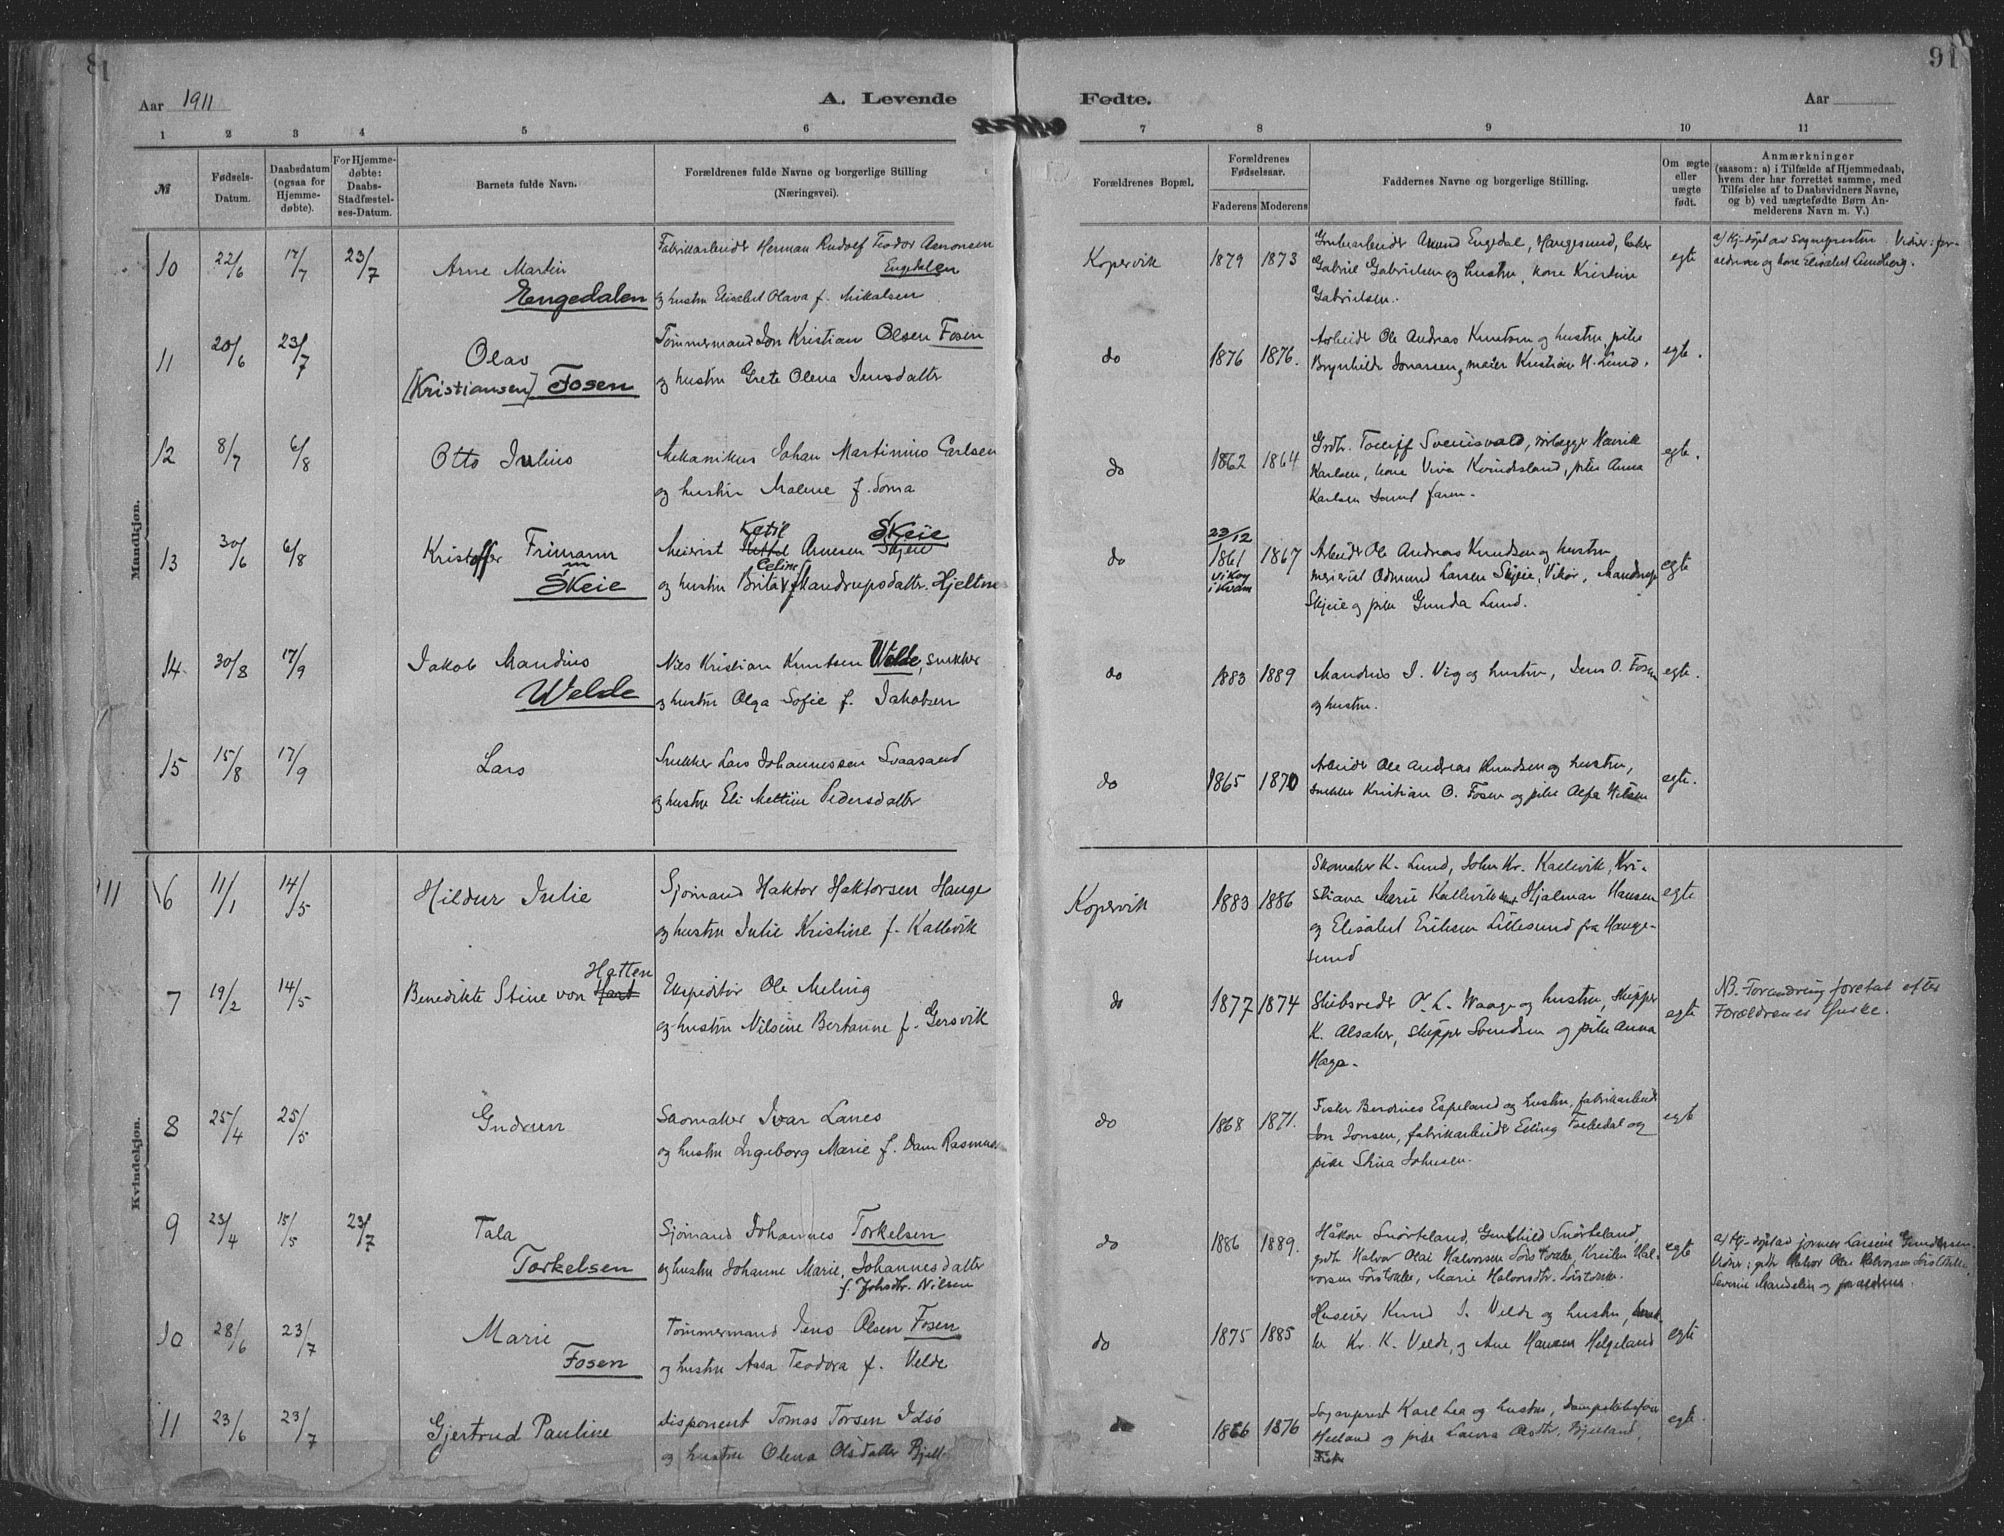 91
Aar 1911
A. Levende
Fødte.
Aar
1 2 3 4 5 6 7 8 9 10 11
№
Fødsels-Datum.
Daabsdatum (ogsaa for Hjemmedøbte).
For Hjemmedøbte: Daabs-Stadfæstelses-Datum.
Barnets fulde Navn.
Forældrenes fulde Navne og borgerlige Stilling (Næringsvei).
Forældrenes Bopæl.
Forældrenes Fødselsaar.
Faderens Moderens
Faddernes Navne og borgerlige Stilling.
Om ægte eller uægte født.
Anmærkninger
(saasom: a) i Tilfælde af Hjemmedaab,
hvem der har forrettet samme, med
Tilføielse af to Daabsvidners Navne,
og b) ved uægtefødte Børn Anmelderens Navn m. V.)
Mandkjøn.
10 22/6 17/7 23/7 Arne Martin
Engedalen
Fabrikarbeider Herman Rudolf Teodor Asmonsen
Engedalen
og hustru Elisabet Olava f. Mikalsen
Kopervik 1879 1873
Engedal, Haugesund,
Gabriel Gabrielsen og hustru, kone Kristine
Gabrielsen.
egte
a) Hj-døpt av Sognepresten. Vidner: for-
ældrene og kone Elisabet Lundberg.
11 20/6 23/7 Olav
[Kristiansen] Fosen
Tømmermand Jon Kristian Olsen Fosen
og hustru Grete Olena Jensdatter
do 1876 1876.
Arbeider Ole Andreas Knutsen og hustru, pike
Brynhild Jonassen, maler Kristian H. Lund.
egte.
12 8/7 6/8 Otto Julius
Mekanikus Johan Martinius Carlsen
og hustru Malene f. Soma
do 1862 1864
Svensvold, Henrik
Karlsen, kone Viva Kvindesland, pike Anna
Karlsen samt faren.
egte.
13 30/6 6/8 Kristoffer Frimann
Skeie
Ketil Skeie
Meierist Arnesen Skjeie
Celine
og hustru Brita f. Mandrupsdatter Hjeltnes
do
23/12
1861 1867
Vikøy
i Kvam
Arbeider Ole Andreas Knudsen og hustru
meierist Odmund Larsen Skjeie, Vikør, Mandrup
Skjeie og pike Gunda Lund.
egte
14 30/8 17/9 Jakob Mandius
Welde
Nils Kristian Knutsen Welde, snekker
og hustru Olga Sofie f. Jakobsen
do 1883 1889
Mandius J. Vig og hustru, Jens O. Fosen
og hustru.
egte.
15 15/8 17/9 Lars
Snekker Lars Johannessen Svaasand
og hustru Eli Pedersdatter
do 1865 1870
Arbeider Ole Andreas Knudsen og hustru,
snekker Kristian O. Fosen og pike Alfa Nilsen
egte.
Kvindekjøn.
6 11/1 14/5 Hildur Julie
Sjømand Haktor Haktorsen Hauge
og hustru Julie Kristine f. Kallevik
Kopervik 1883 1886
Skomaker K. Lund, John Kr. Kallevik, Kri-
stiana Marie Kallevik samt Hjalmar Hansen
og Elisabet Eriksen Lillesund fra Hauge-
sund
egte
Hatten
7 19/2 14/5 Benedikte Stine von Hart
Ekspeditør Ole Meling
og hustru Nilsine Bertanne f. Gersvik
do 1877 1874
Skibsreder O. L. Waage og hustru, skipper
K. Alsaker, skipper Svendsen og pike Anna
Haga.
egte
NB. Forandring foretat efter
Forældrenes Ønske.
8 25/4 25/5 Gudrun
Saomaker Ivar Lanes
og hustru Ingeborg Marie f. Dam Rasmussen
do 1868 1871.
Fisker Berdines Espeland og hustru, fabrikarbeider
Jon Jonsen, fabrikarbeider Elling og
pike Stina Johnsen.
egte
9 23/4 15/5 23/7 Tala
Torkelsen
Sjømand Johannes Torkelsen
og hustru Johanne Marie Johannesdatter
f. Johsdtr. Nilsen
do 1886 1889.
Håkon Snørteland, Gunhild Snørteland,
gdbr. Halvor Olai Halvorsen Hal-
vorsen Marie Halvorsdtr.
egte
a) Hj-døpt av jormor Larsine Gundersen.
Vidner: gdbr. Halvor Olai Halvorsen
Severine Mandelin og
10 28/6 23/7 Marie
Fosen
Tømmermand Jens Olsen Fosen
og hustru Aasa Teodora f. Velde
do 1875 1885
Huseier Knud J. Velde og hustru,
Kr. K. Velde, og Ane Hansen Helgeland
egte
11 23/6 23/7 Gjertrud Pauline
disponent Tomas Torsen Idsø
og hustru Olena Olsdatter Bjell-
do 1866 1876
Sogneprest Karl Lea og hustru,
og pike Laura Bjelland,
egte.